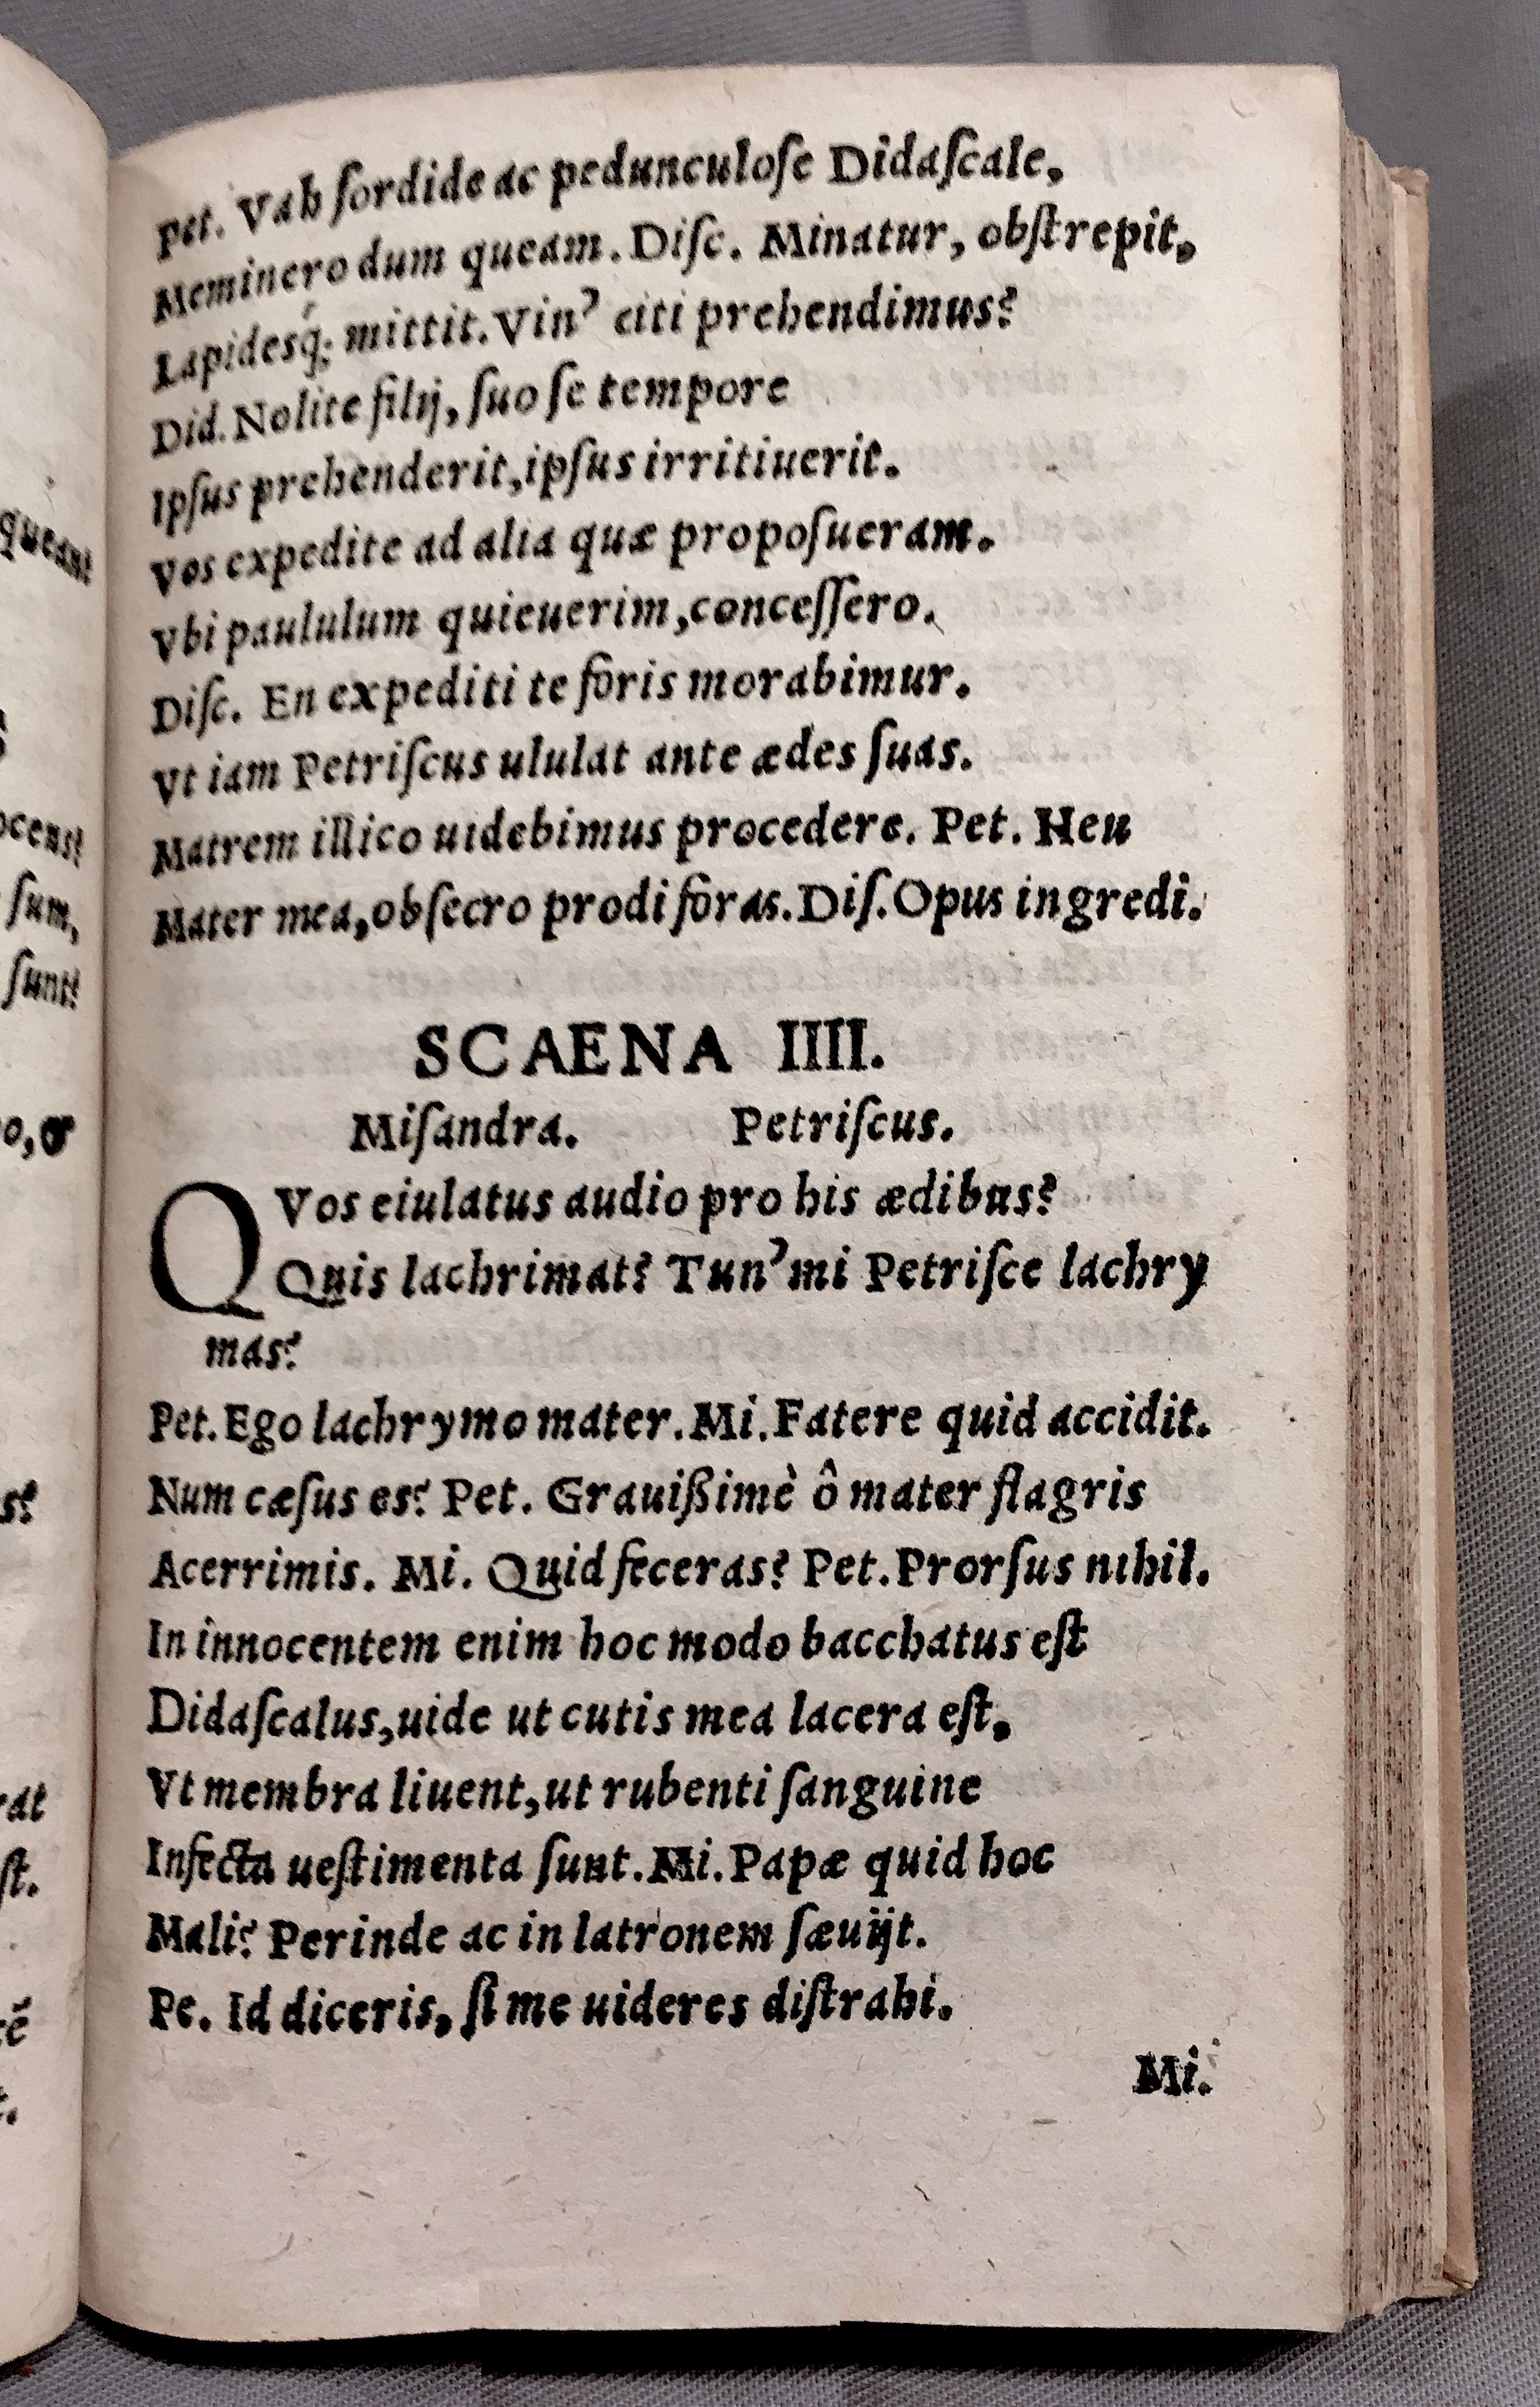 Pet. Vah ſordide ac pedunculoſe Didaſcale,
Meminero dum queam. Diſc. Minatur, obſtrepit,
Lapidesq́; mittit. Vin’ citi prehendimus?
Did. Nolite filij, ſuo ſe tempore
Ipſus prehenderit, ipſus irritiuerit.
Vos expedite ad alia quæ propoſueram.
Vbi paululum quieuerim, conceſſero.
Diſc. En expediti te foris morabimur.
Vt iam Petriſcus ululat ante ædes ſuas.
Matrem illico uidebimus procedere. Pet. Heu
Mater mea, obſecro prodi foras. Diſ. Opus ingredi.
SCAENA IIII.
Miſandra. Petriſcus.
QVos eiulatus audio pro his ædibus?
Quis lachrimat? Tun’ mi Petriſce lachry
mas?
Pet. Ego lachrymo mater. Mi. Fatere quid accidit.
Num cæſus es? Pet. Grauißimè ô mater flagris
Acerrimis. Mi. Quid feceras? Pet. Prorſus nihil.
In innocentem enim hoc modo bacchatus eſt
Didaſcalus, uide ut cutis mea lacera eſt,
Vt membra liuent, ut rubenti ſanguine
Infecta ueſtimenta ſunt. Mi. Papæ quid hoc
Mali? Perinde ac in latronem ſæuijt.
Pe. Id diceris, ſi me uideres diſtrahi.
Mi.
queant
ſum,
ſunt?